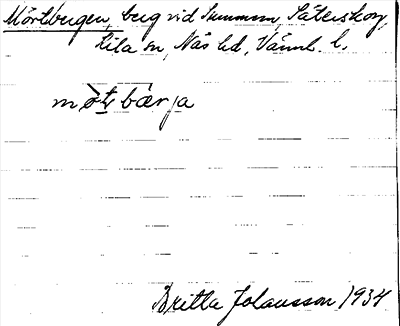 Mörtbergen, berg vid Summun, Säterskog,
Kila sn, Näs hd, Värml. l.
mötbærja
Britta Johansson 1934